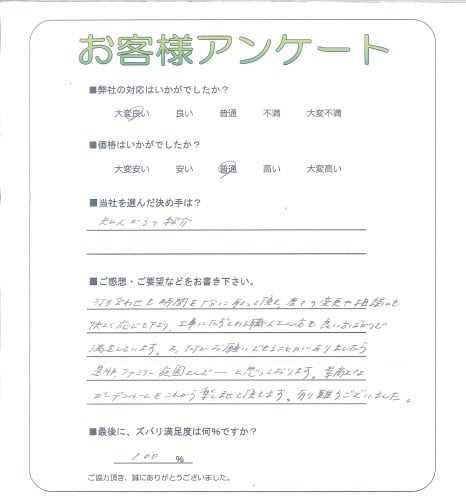 お客様アンケート
■弊社の対応はいかがでしたか？
大変良い 良い 普通 不満 大変不満
■価格はいかがでしたか？
大変安い 安い 普通 高い 大変高い
■当社を選んだ決め手は？
知人からの紹介
■ご感想・ご要望などをお書き下さい。
打ち合わせも時間を充分に取って頂き、度々の変更や相談にも
快よく応じて下さり、工事にたずさわる職人さん方も良い方ばかりで
満足しています。又、何かお願いできることがありましたら
是非、ファミリー庭園さんで――と思っております。素敵な
ガーデンルームをこれから楽しませて頂きます。有り難うございました。
■最後に、ズバリ満足度は何%ですか？
100 %
ご協力頂き、誠にありがとうございました。